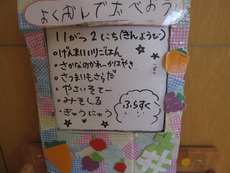 よくかんでたべよう
11がつ2にち(きんようび)
・げんまいいりごはん
・さかなのかれーかばやき
・さつまいもさらだ
・やさいそてー
・みそしる
・ぎゅうにゅう
ぷらすく